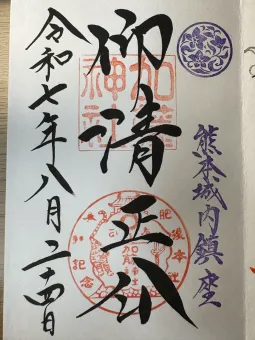 熊本城内鎮座
仰清正公
加藤神社
令和七年八月二十四日